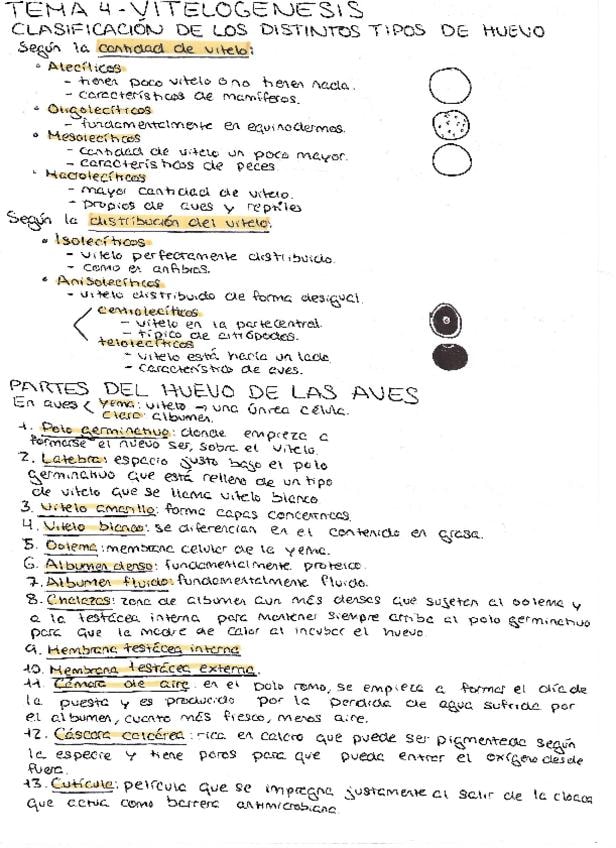 TEMA 4-VITELOGENESIS
CLASIFICACIÓN DE LOS DISTINTOS TIPOS DE HUEVO
Según la cantidad de vitelo:
• Alecíticos
- tienen poco vitelo o no tienen nada.
- características de mamíferos.
• Oligolecíticos
- fundamentalmente en equinodermos.
• Mesolecíticos
- cantidad de vitelo un poco mayor.
- características de peces.
• Macrolecíticos
- mayor cantidad de vitelo.
- propios de aves y reptiles
Según la distribución del vitelo:
• Isolecíticos
- vitelo perfectamente distribuido.
- como en anfibios.
• Anisolecíticos
- vitelo distribuido de forma desigual.
centrolecíticos
- vitelo en la parte central.
- típico de artrópodos.
telolecíticos
- vitelo está hacia un lado.
- característico de aves.
PARTES DEL HUEVO DE LAS AVES
En aves < yema: vitelo → una única célula.
clara: albumen.
1. Polo germinativo: donde empieza a
formarse el nuevo ser, sobre el vitelo.
2. Latebra: espacio justo bajo el polo
germinativo que está relleno de un tipo
de vitelo que se llama vitelo blanco
3. Vitelo amarillo: forma capas concentricas.
4. Vitelo blanco: se diferencian en el contenido en grasa.
5. Oolema: membrana celular de la yema.
6. Albumen denso: fundamentalmente proteico.
7. Albumen fluido: fundamentalmente fluido.
8. Chalazas: zona de albumen aun más densas que sujetan al oolema y
a la testácea interna para mantener siempre arriba al polo germinativo
para que la madre de calor al incubar el huevo.
9. Membrana testácea interna
10. Membrana testácea externa.
11. Cámara de aire: en el polo romo, se empieza a formar el día de
la puesta y es producido por la perdida de agua sufrida por
el albumen, cuanto más fresco, menos aire.
12. Cáscara calcárea: rica en calcio que puede ser pigmentada según
la especie y tiene poros para que pueda entrar el oxígeno desde
fuera.
13. Cutícula: película que se impregna justamente al salir de la cloaca
que actua como barrera antimicrobiana.